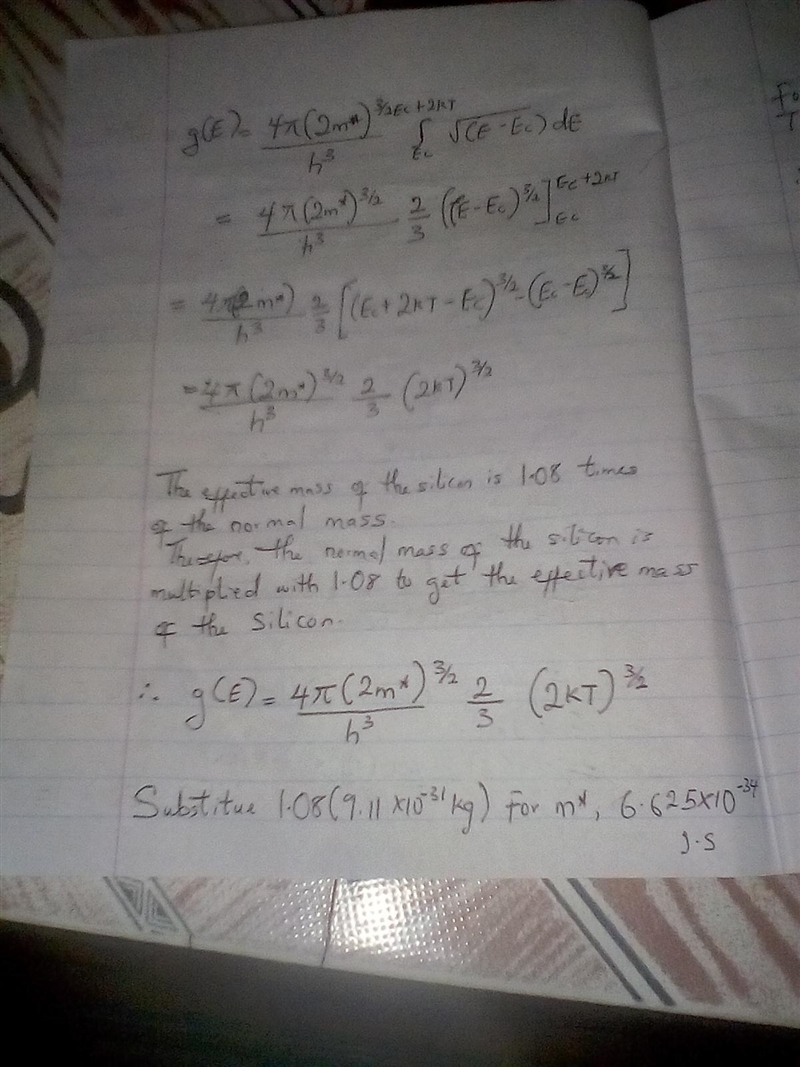 g(E) = 4π(2m*)^3/2 / h³ ∫_Ec^Ec+2KT √(E - Ec) dE
= 4π(2m*)^3/2 / h³ 2/3 ((E - Ec)^3/2]_Ec^Ec+2KT
= 4π(2m*) / h³ 2/3 [(Ec + 2KT - Ec)^3/2 - (Ec - Ec)^3/2]
= 4π(2m*)^3/2 / h³ 2/3 (2KT)^3/2
The effective mass of the silicon is 1.08 times
of the normal mass.
Therefore, the normal mass of the silicon is
multiplied with 1.08 to get the effective mass
of the Silicon.
∴ g(E) = 4π(2m*)^3/2 / h³ 2/3 (2KT)^3/2
Substitue 1.08(9.11 × 10^-31 kg) for m*, 6.625×10^-34
J.S
Fo
T